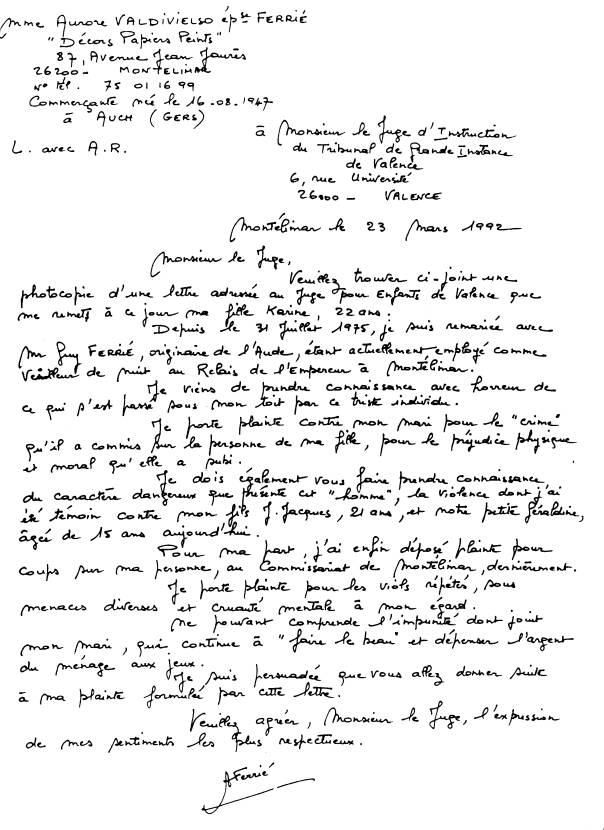 Mme Aurore VALDIVIELSO épse FERRIÉ
"Décors Papiers Peints"
87, Avenue Jean Jaurès
26200 - MONTELIMAR
N° tél. 75 01 16 99
Commerçante née le 16.08.1947
à AUCH (GERS)
L. avec A.R.
à Monsieur le Juge d'Instruction
du Tribunal de Grande Instance
de Valence
6, rue Université
26000 - VALENCE
Montélimar le 23 Mars 1992
Monsieur le Juge,
Veuillez trouver ci-joint une
photocopie d'une lettre adressée au Juge pour Enfants de Valence que
me remets à ce jour ma fille Karine, 22 ans.
Depuis le 31 Juillet 1975, je suis remariée avec
Mr Guy FERRIÉ, originaire de l'Aude, étant actuellement employé comme
Veilleur de nuit au Relais de l'Empereur à Montélimar.
Je viens de prendre connaissance avec horreur de
ce qui s'est passé sous mon toit par ce triste individu.
Je porte plainte contre mon mari pour le "crime"
qu'il a commis sur la personne de ma fille, pour le préjudice physique
et moral qu'elle a subi.
Je dois également vous faire prendre connaissance
du caractère dangereux que présente cet "homme", la violence dont j'ai
été témoin contre mon fils J. Jacques, 21 ans, et notre petite Géraldine,
âgée de 15 ans aujourd'hui.
Pour ma part, j'ai enfin déposé plainte pour
coups sur ma personne, au Commissariat de Montélimar, dernièrement.
Je porte plainte pour les viols répétés, sous
menaces diverses et cruauté mentale à mon égard.
Ne pouvant comprendre l'impunité dont jouit
mon mari, qui continue à "faire le beau" et dépenser l'argent
du ménage aux jeux.
Je suis persuadée que vous allez donner suite
à ma plainte formulée par cette lettre.
Veuillez agréer, Monsieur le Juge, l'expression
de mes sentiments les plus respectueux.
AFerrié